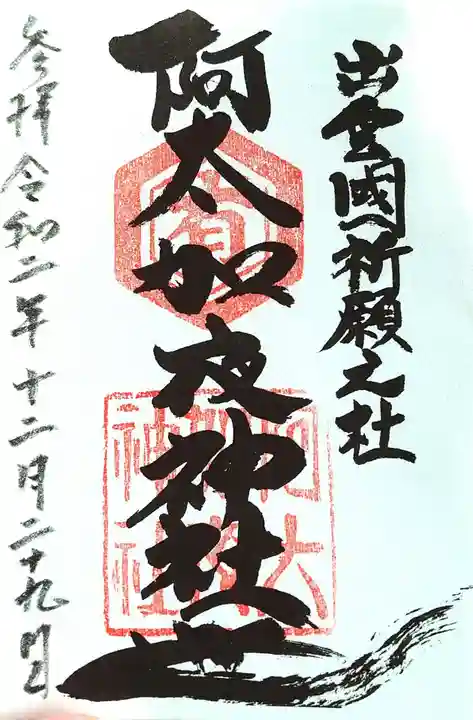 出雲國祈願之社
阿太加夜神社
参拝令和二年十二月二十九日